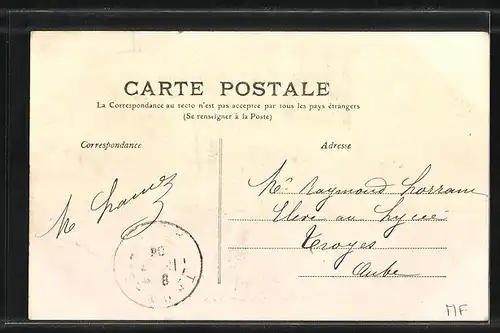 CARTE POSTALE
La Correspondance au recto n'est pas acceptée par tous les pays étrangers
(Se renseigner à la Poste)
Correspondance
Adresse
Mr Raymond
Elève au Lycée
Troyes
Aube
MF